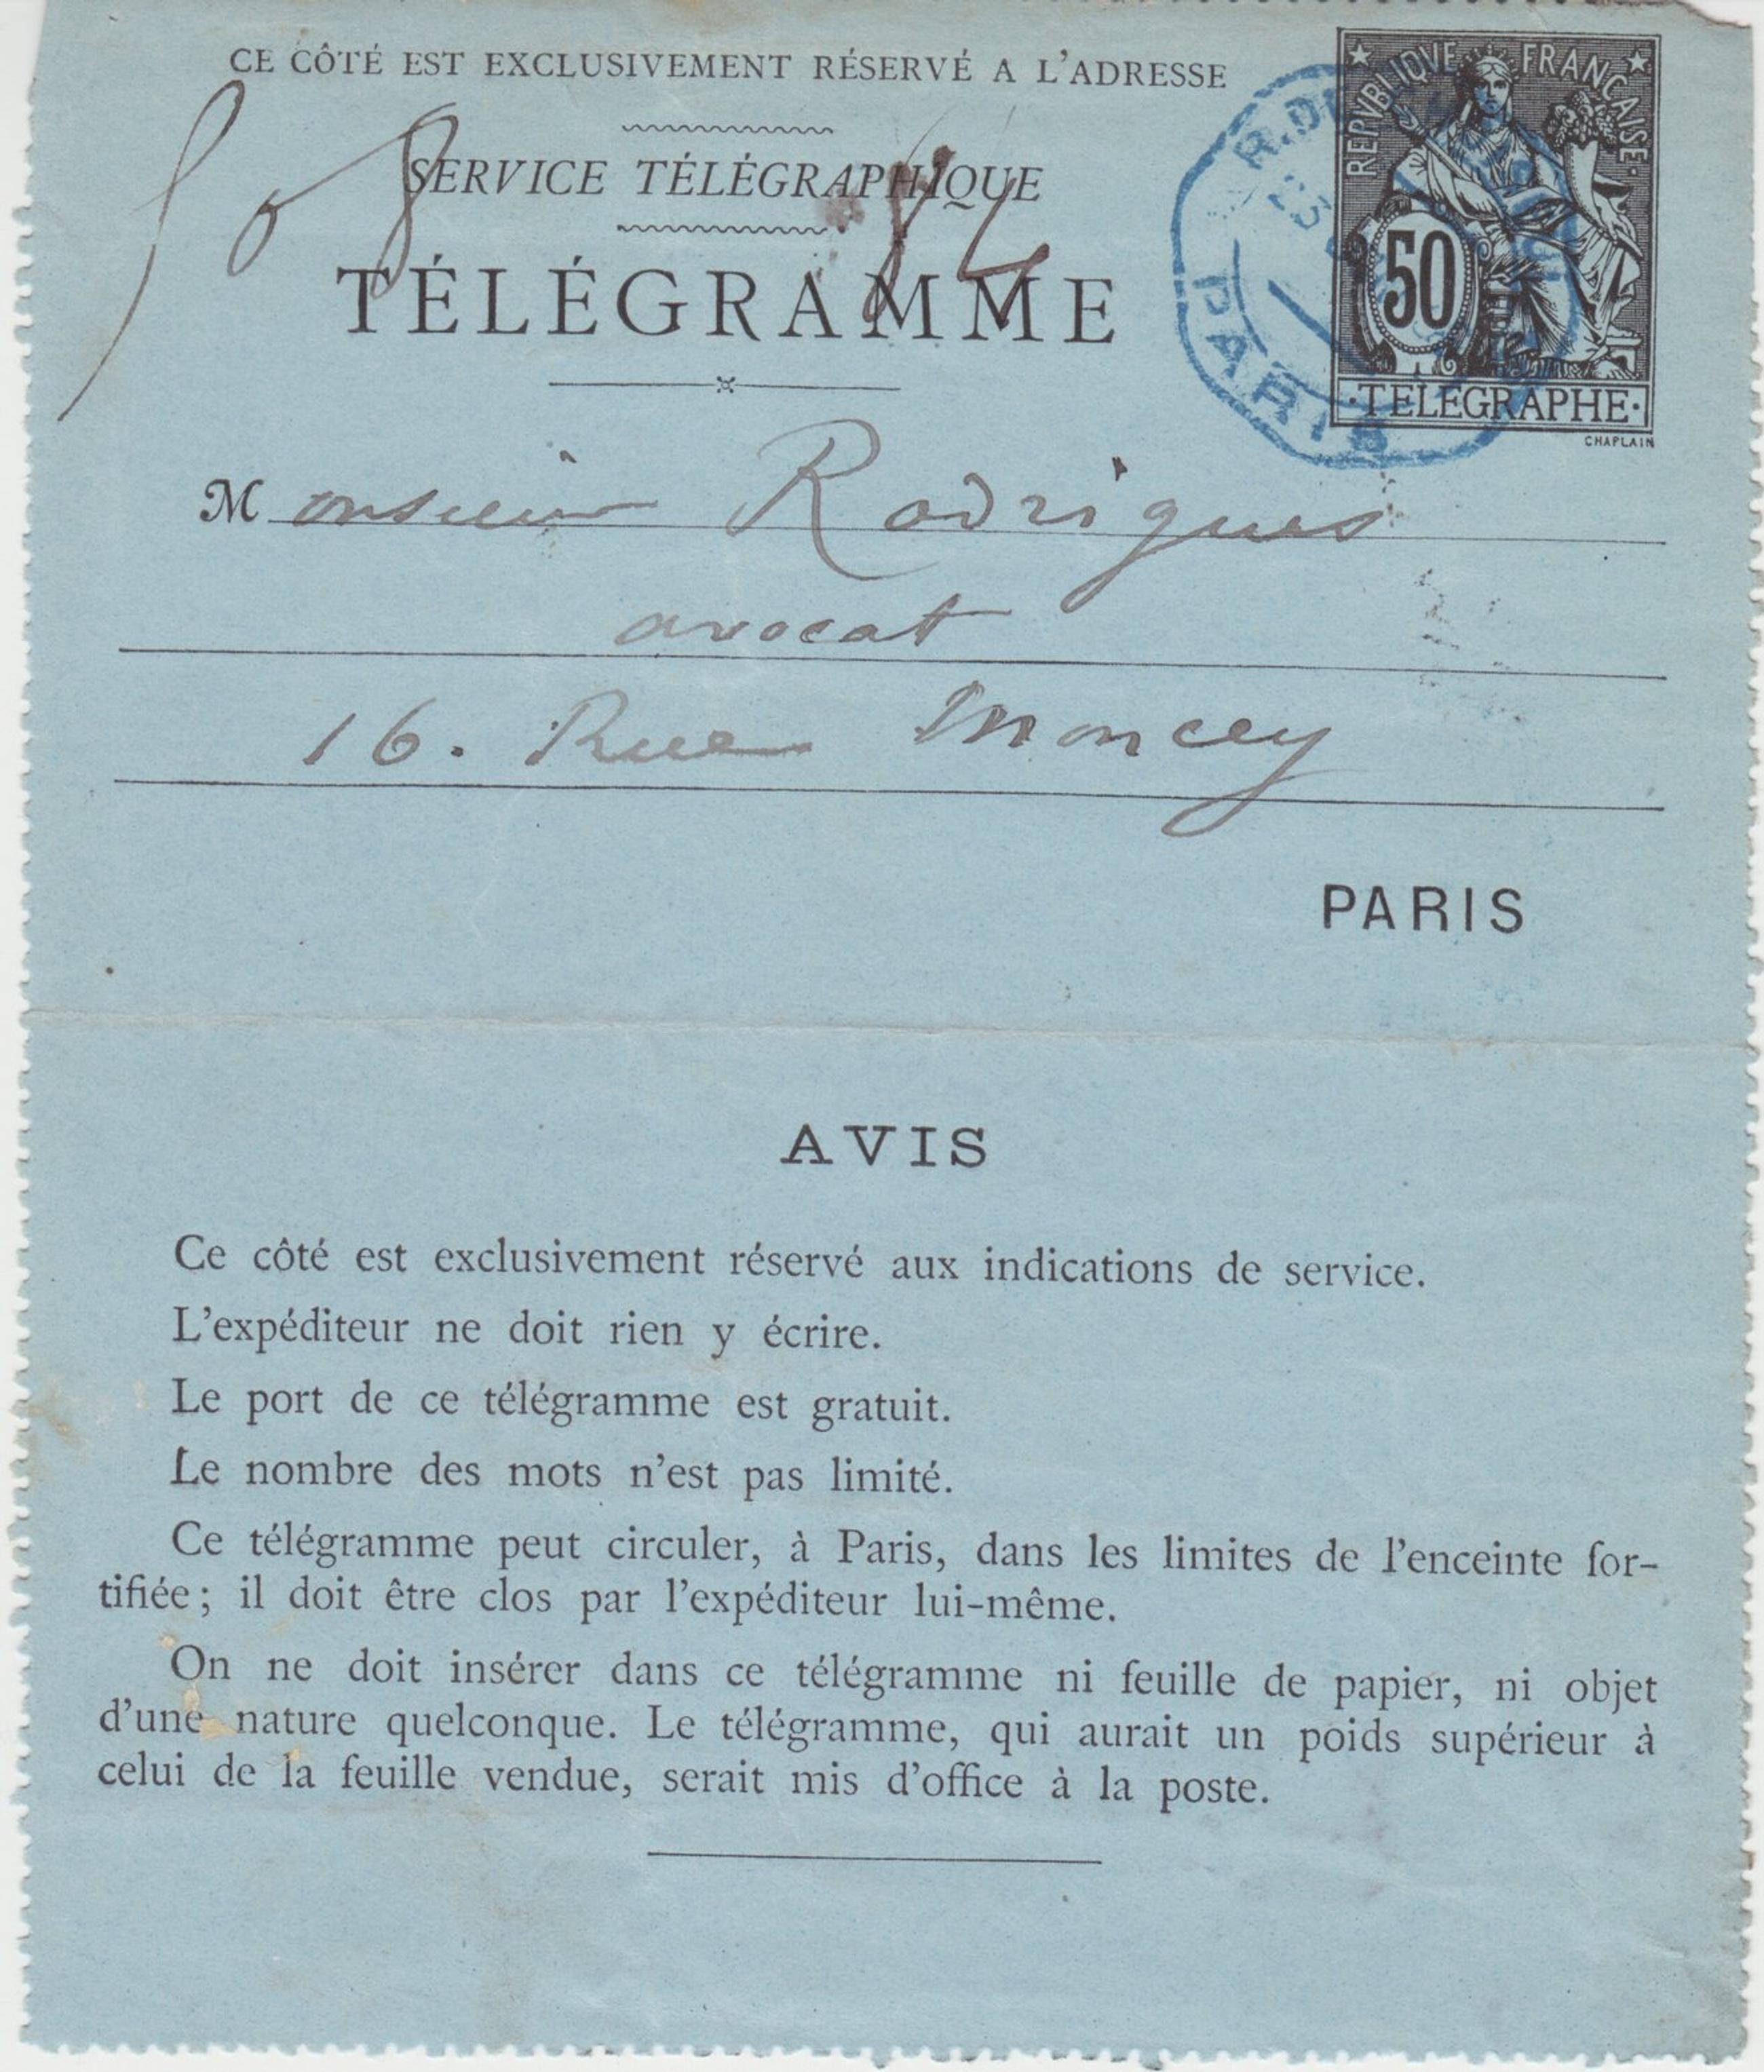 CE CÔTÉ EST EXCLUSIVEMENT RÉSERVÉ A L'ADRESSE
SERVICE TÉLÉGRAPHIQUE
TÉLÉGRAMME
REPVBLIQVE FRANÇAISE
50
·TELEGRAPHE·
CHAPLAIN
PARIS
Monsieur Rodrigues
avocat
16. Rue Moncey
PARIS
AVIS
Ce côté est exclusivement réservé aux indications de service.
L'expéditeur ne doit rien y écrire.
Le port de ce télégramme est gratuit.
Le nombre des mots n'est pas limité.
Ce télégramme peut circuler, à Paris, dans les limites de l'enceinte for-
tifiée; il doit être clos par l'expéditeur lui-même.
On ne doit insérer dans ce télégramme ni feuille de papier, ni objet
d'une nature quelconque. Le télégramme, qui aurait un poids supérieur à
celui de la feuille vendue, serait mis d'office à la poste.